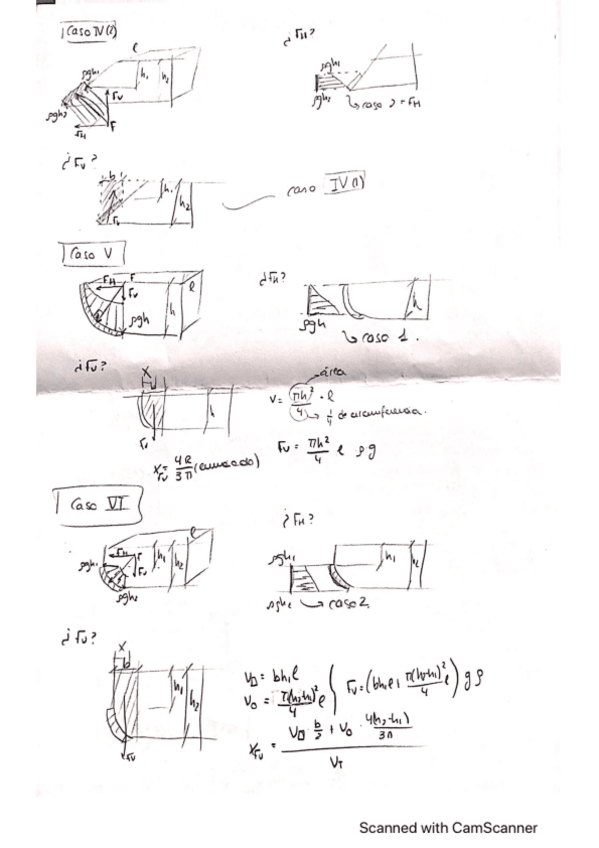 Caso IV(2)
¿FH?
l
ρgh1
h1
h2
FV
ρgh2
FH
F
ρgh1
ρgh2
↳ caso 2 = FH
¿FV?
b
h1
h2
FV
caso IV(1)
Caso V
FH
F
FV
ρgh
h
l
¿FH?
ρgh
h
↳ caso 1.
¿FV?
X
h
FV
área
V = πh²/4 · l
↳ 1/4 de circunferencia.
XFV = 4R/3π (enunciado)
FV = πh²/4 l ρg
Caso VI
¿FH?
l
ρgh1
FH
F
FV
h1
h2
ρgh2
ρgh1
ρgh2
h1
h2
↳ caso 2
¿FV?
X
b
h1
h2
FV
V□ = bh1l
V○ = π(h2-h1)²/4 l
FV = (bh1l + π(h2-h1)²/4 l) gρ
XFV = (V□ · b/2 + V○ · 4(h2-h1)/3π) / VT
Scanned with CamScanner